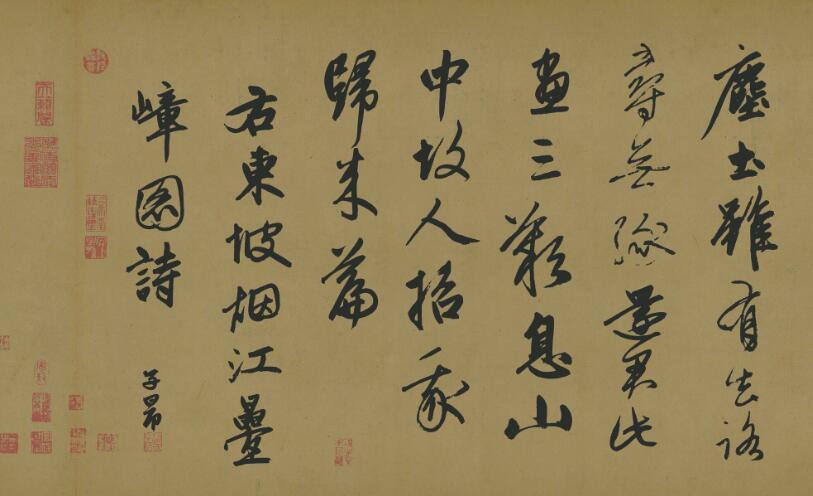 塵土雖有去路
尋無緣還君此
畫三歎息山
中故人招我
歸来篇
右東坡烟江疊
嶂圖詩
子昂